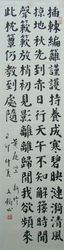 插棘編籬謹護持養成寒碧映漣漪清風
掠地秋先到赤日行天午不知解籜時聞
聲簌簌放梢初見影離離歸閑我欲頻來
此枕簟仍教到處隨